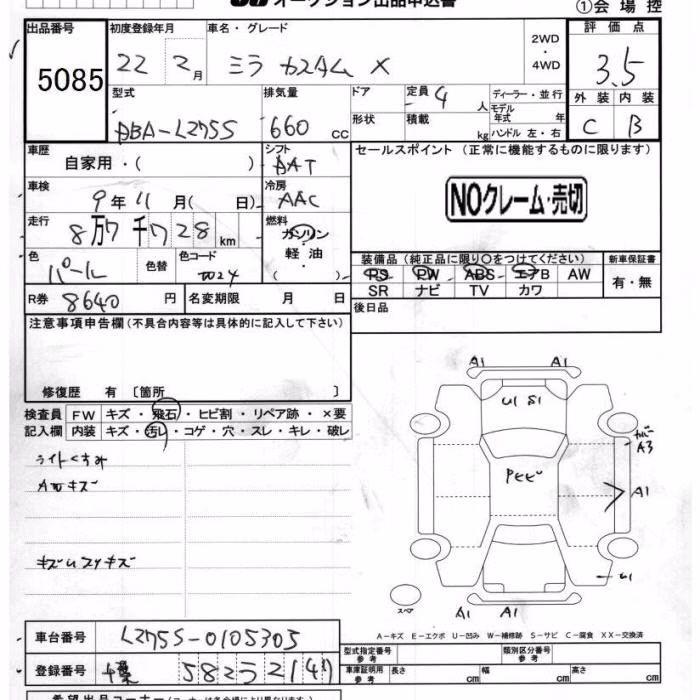 オークション出品申込書
①会場控
出品番号 初度登録年月 車名・グレード 2WD ・ 4WD 評価点
5085 22 2月 ミラ カスタム X 3.5
型式 排気量 ドア 定員 4人 ディーラー・並行 外装 内装
ABA-L275S 660 cc 形状 積載 kg モデル年式 年 ハンドル 左・右 C B
車歴 シフト セールスポイント (正常に機能するものに限ります)
自家用・( ) DAT
車検 冷房
9年11月( 日) AAC NOクレーム・売切
走行 燃料
8万7千728km ガソリン・軽油・( )
色 色替 色コード 装備品(純正品に限り○をつけてください) 新車保証書
パール W24 PS PW ABS エアB AW 有・無
SR ナビ TV カワ
R券 8640円 名変期限 月 日 後日品
注意事項申告欄(不具合内容等は具体的に記入して下さい)
修復歴 有 〔箇所 〕
検査員 FW キズ・飛石・ヒビ割・リペア跡・×要
記入欄 内装 キズ・汚れ・コゲ・穴・スレ・キレ・破レ
A1 A1
U1 S1
A3
ライトくすみ
A1
U1
スペア
A1 A1
A-キズ E-エクボ U-凹み W-補修跡 S-サビ C-腐食 XX-交換済
車台番号 L275S-0105303
型式指定番号 参考 類別区分番号 参考
登録番号 582 う 2147
車庫証明用 参考 長さ cm 幅 cm 高さ cm
希望出品コーナー